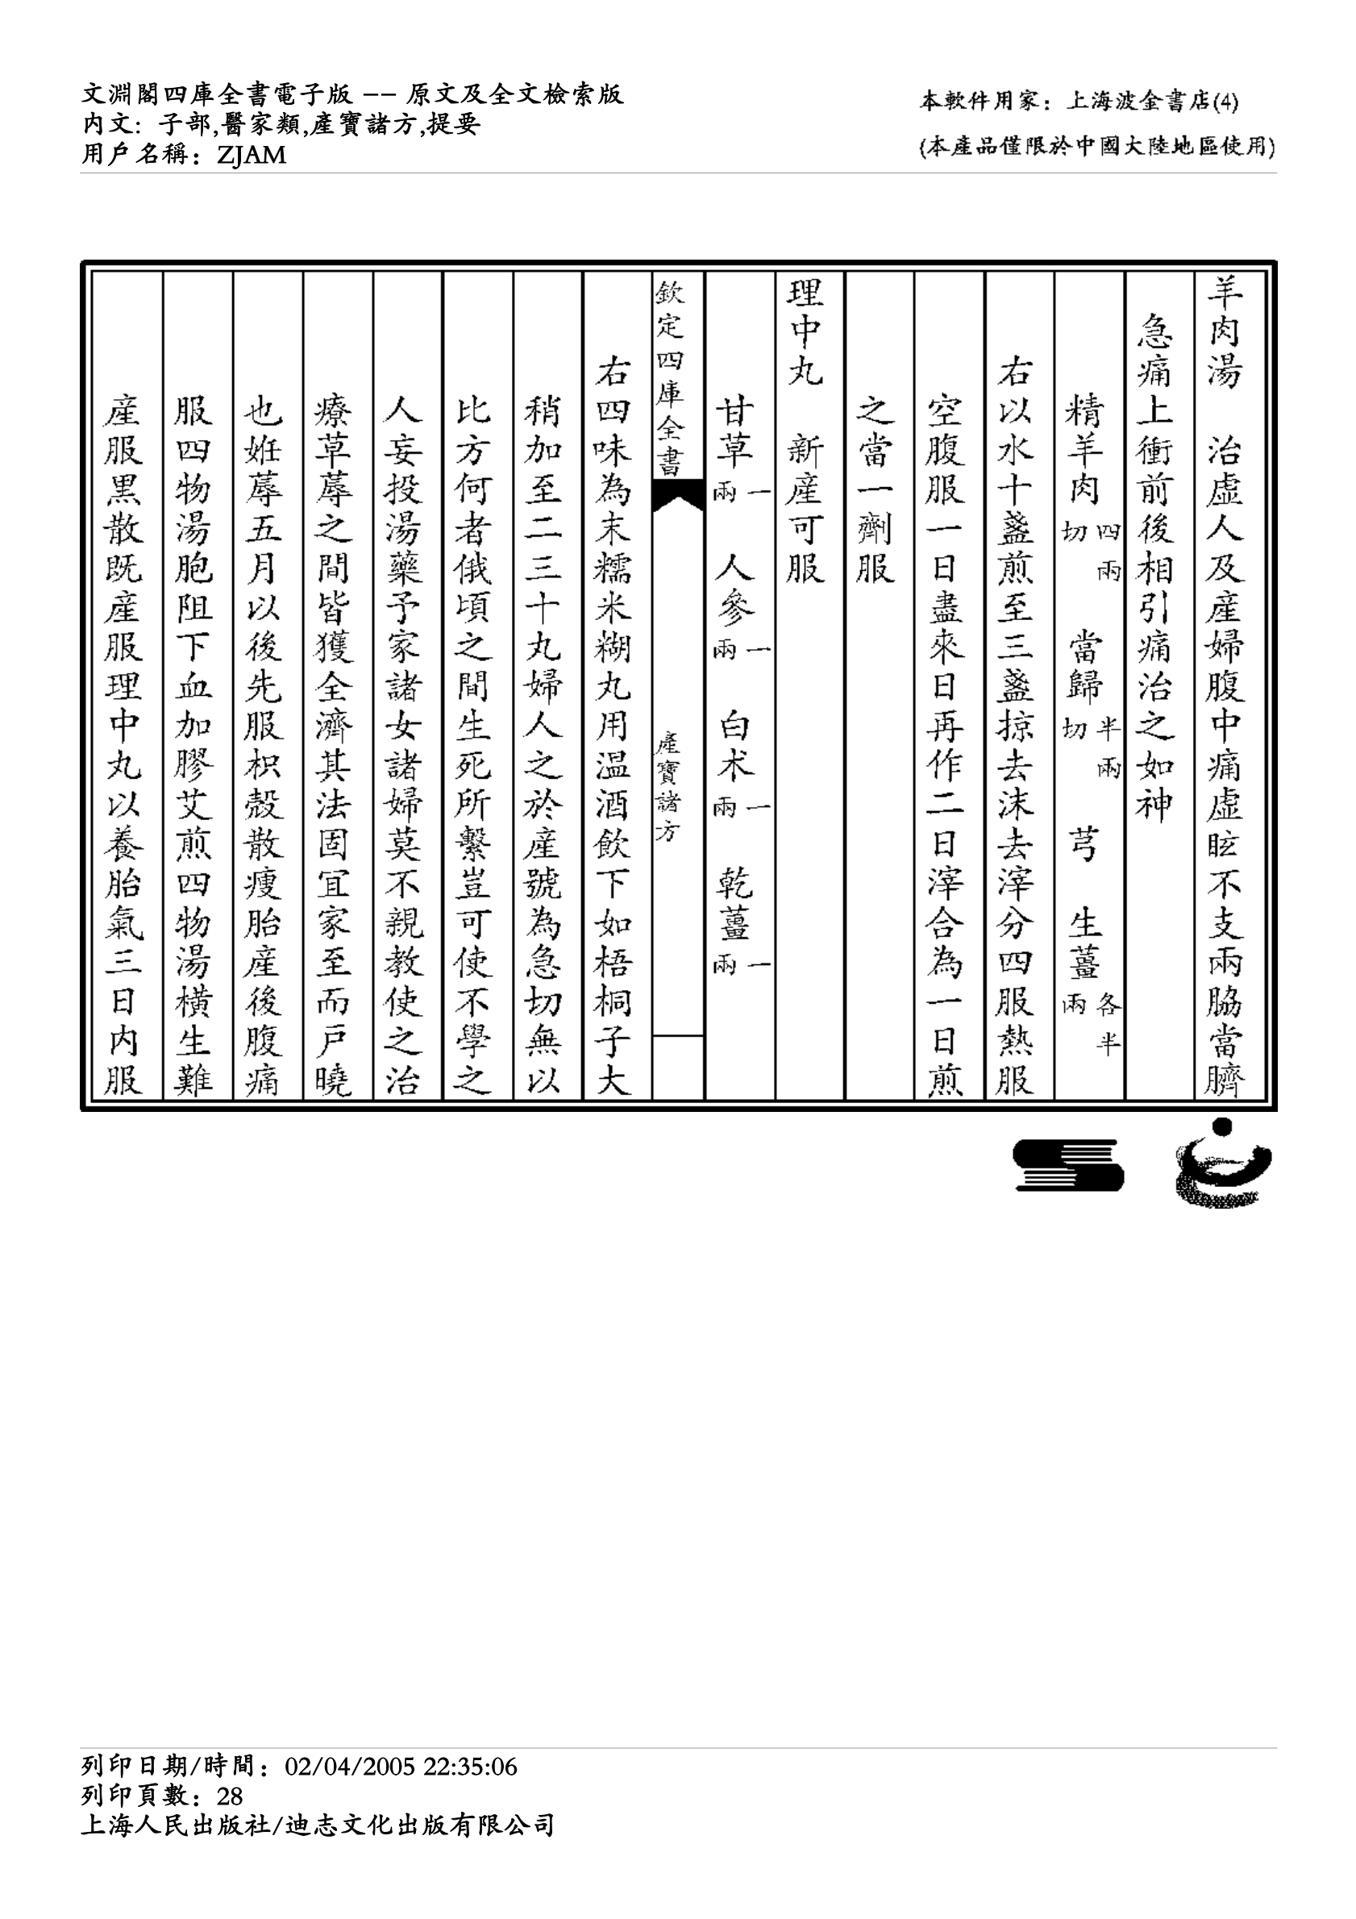 文淵閣四庫全書電子版 -- 原文及全文檢索版
內文: 子部,醫家類,產寶諸方,提要
用戶名稱: ZJAM
本軟件用家: 上海波金書店(4)
(本產品僅限於中國大陸地區使用)
羊肉湯 治虛人及產婦腹中痛虛眩不支兩脇當臍
急痛上衝前後相引痛治之如神
精羊肉四兩切 當歸半兩切 芎 生薑各半兩
右以水十盞煎至三盞掠去沫去滓分四服熱服
空腹服一日盡來日再作二日滓合為一日煎
之當一劑服
理中丸 新產可服
甘草一兩 人參一兩 白术一兩 乾薑一兩
欽定四庫全書 產寶諸方
右四味為末糯米糊丸用温酒飲下如梧桐子大
稍加至二三十丸婦人之於產號為急切無以
比方何者俄頃之間生死所繫豈可使不學之
人妄投湯藥予家諸女諸婦莫不親教使之治
療草蓐之間皆獲全濟其法固宜家至而戶曉
也姙蓐五月以後先服枳殼散瘦胎產後腹痛
服四物湯胞阻下血加膠艾煎四物湯橫生難
產服黑散既產服理中丸以養胎氣三日內服
列印日期/時間: 02/04/2005 22:35:06
列印頁數: 28
上海人民出版社/迪志文化出版有限公司